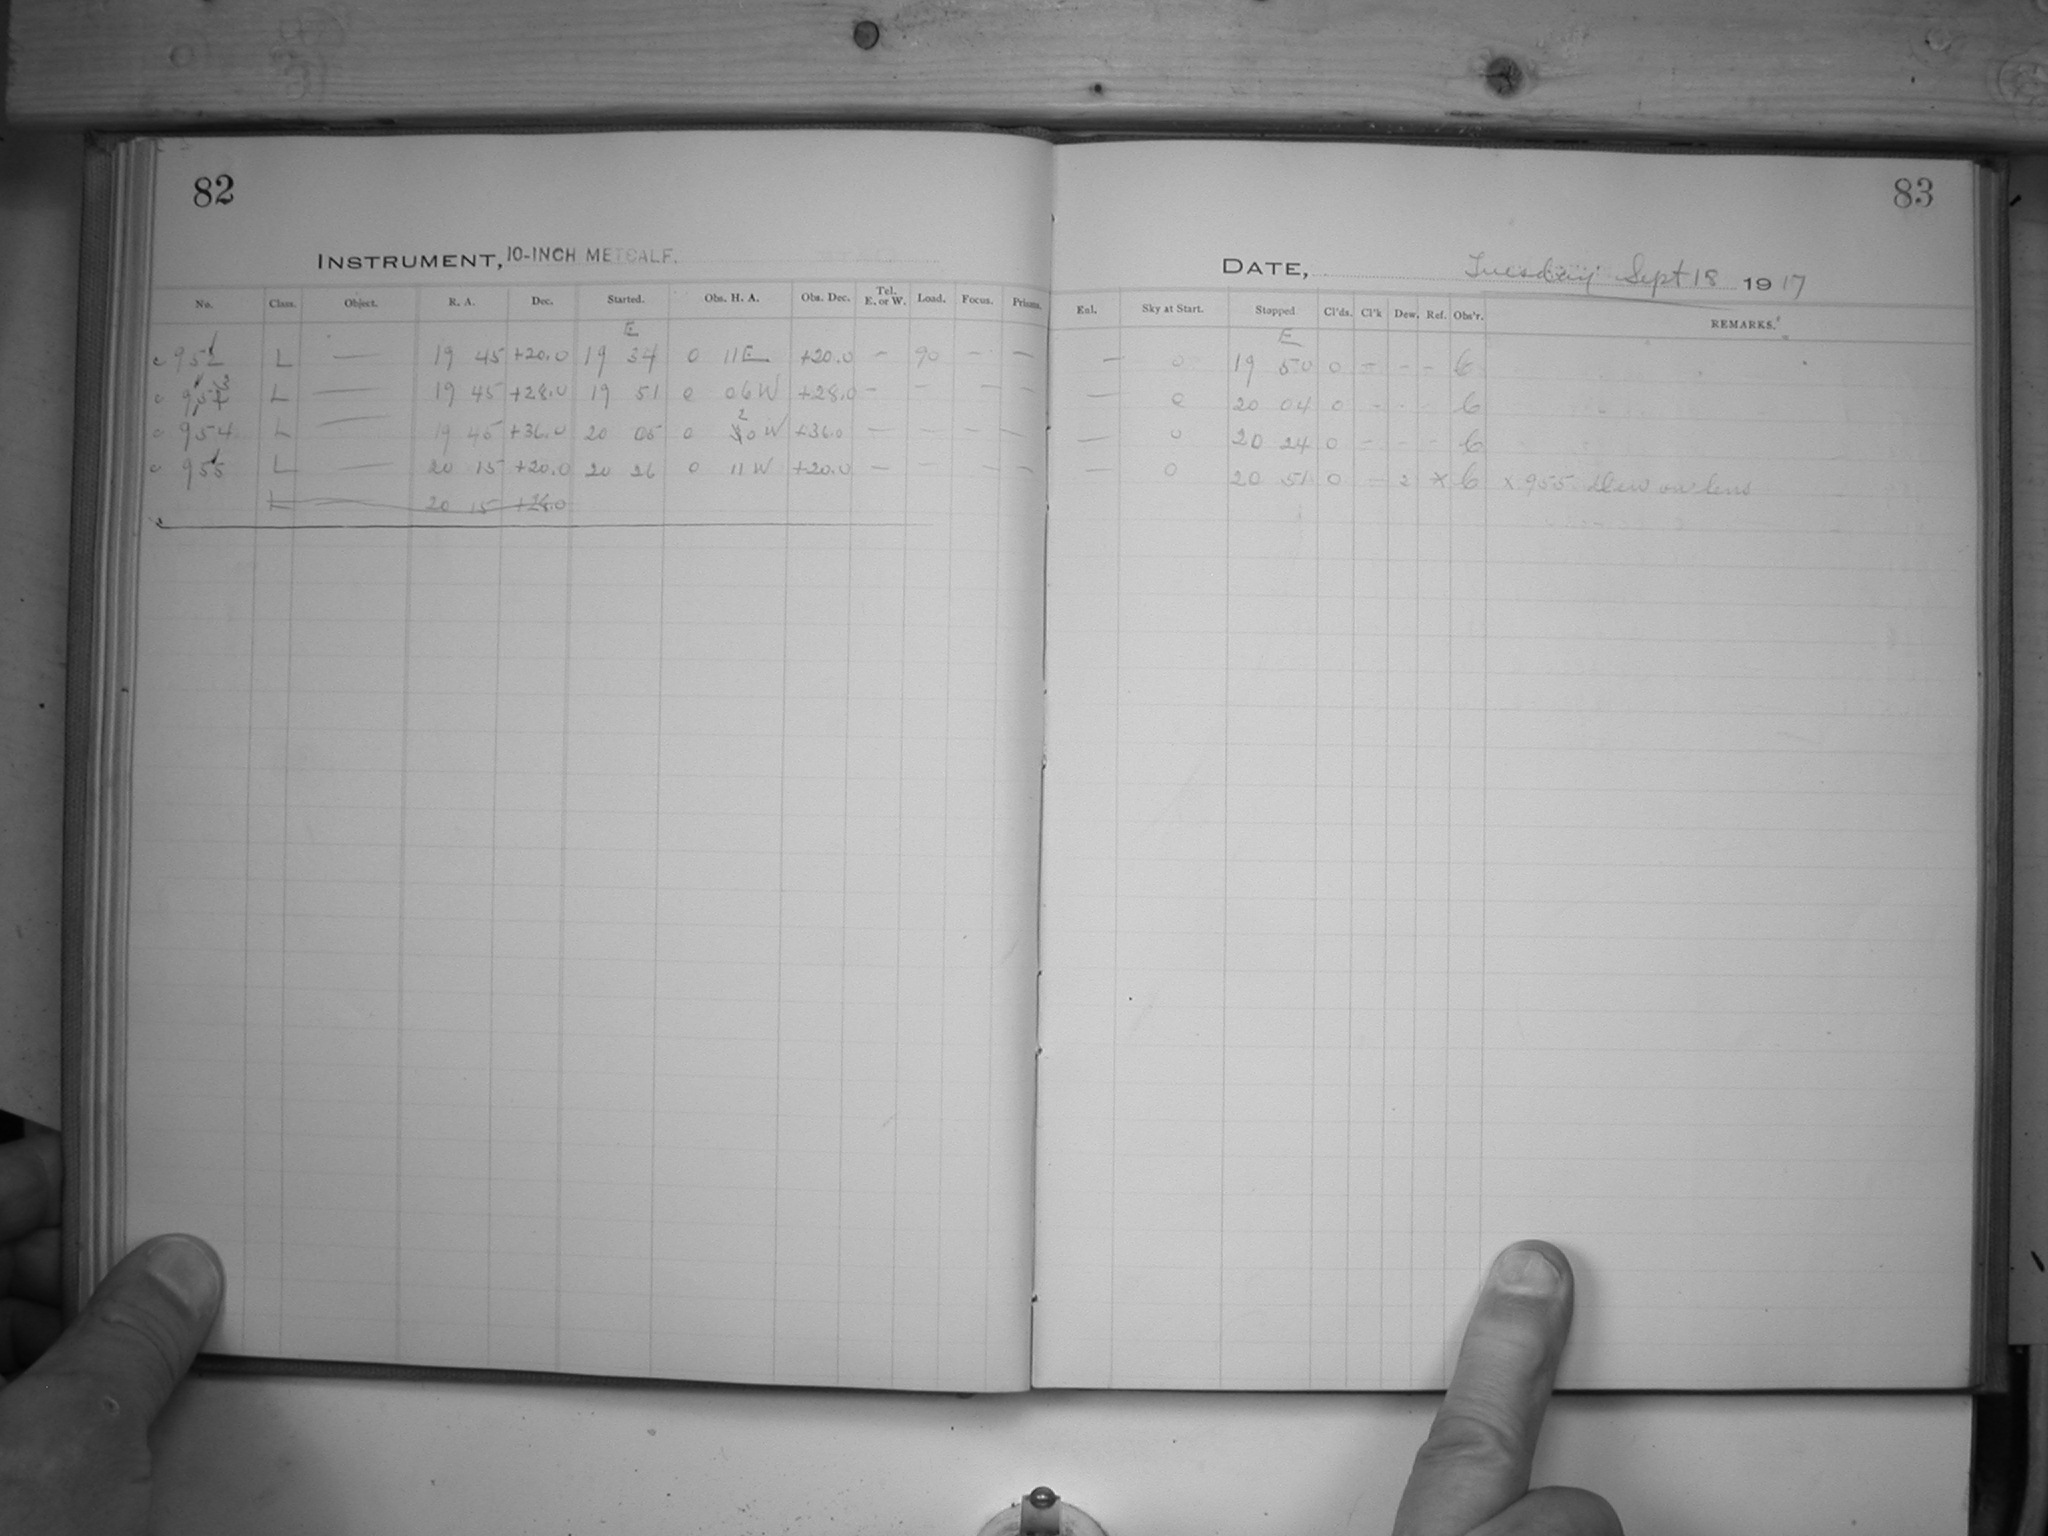 82
INSTRUMENT, 10-INCH METCALF.
No. Class. Object. R. A. Dec. Started. Obs. H. A. Obs. Dec. Tel. E. or W. Load. Focus. Prisms.
E
L — 19 45 +20.0 19 34 0 11 E +20.0 — 90 — —
L — 19 45 +28.0 19 51 0 06 W +28.0 — — —
954 L — 19 45 +36.0 20 05 0 20 W +36.0 — — — —
955 L — 20 15 +20.0 20 26 0 11 W +20.0 — — — —
L — 20 15 +28.0
83
DATE, Tuesday Sept 18 1917
Enl. Sky at Start. Stopped Cl'ds. Cl'k Dew. Ref. Obs'r. REMARKS.
E
— 0 19 50 0 - - - 6
— 0 20 04 0 - - - 6
— 0 20 24 0 - - - 6
— 0 20 51 0 - 2 x 6 x 955 Dew on lens